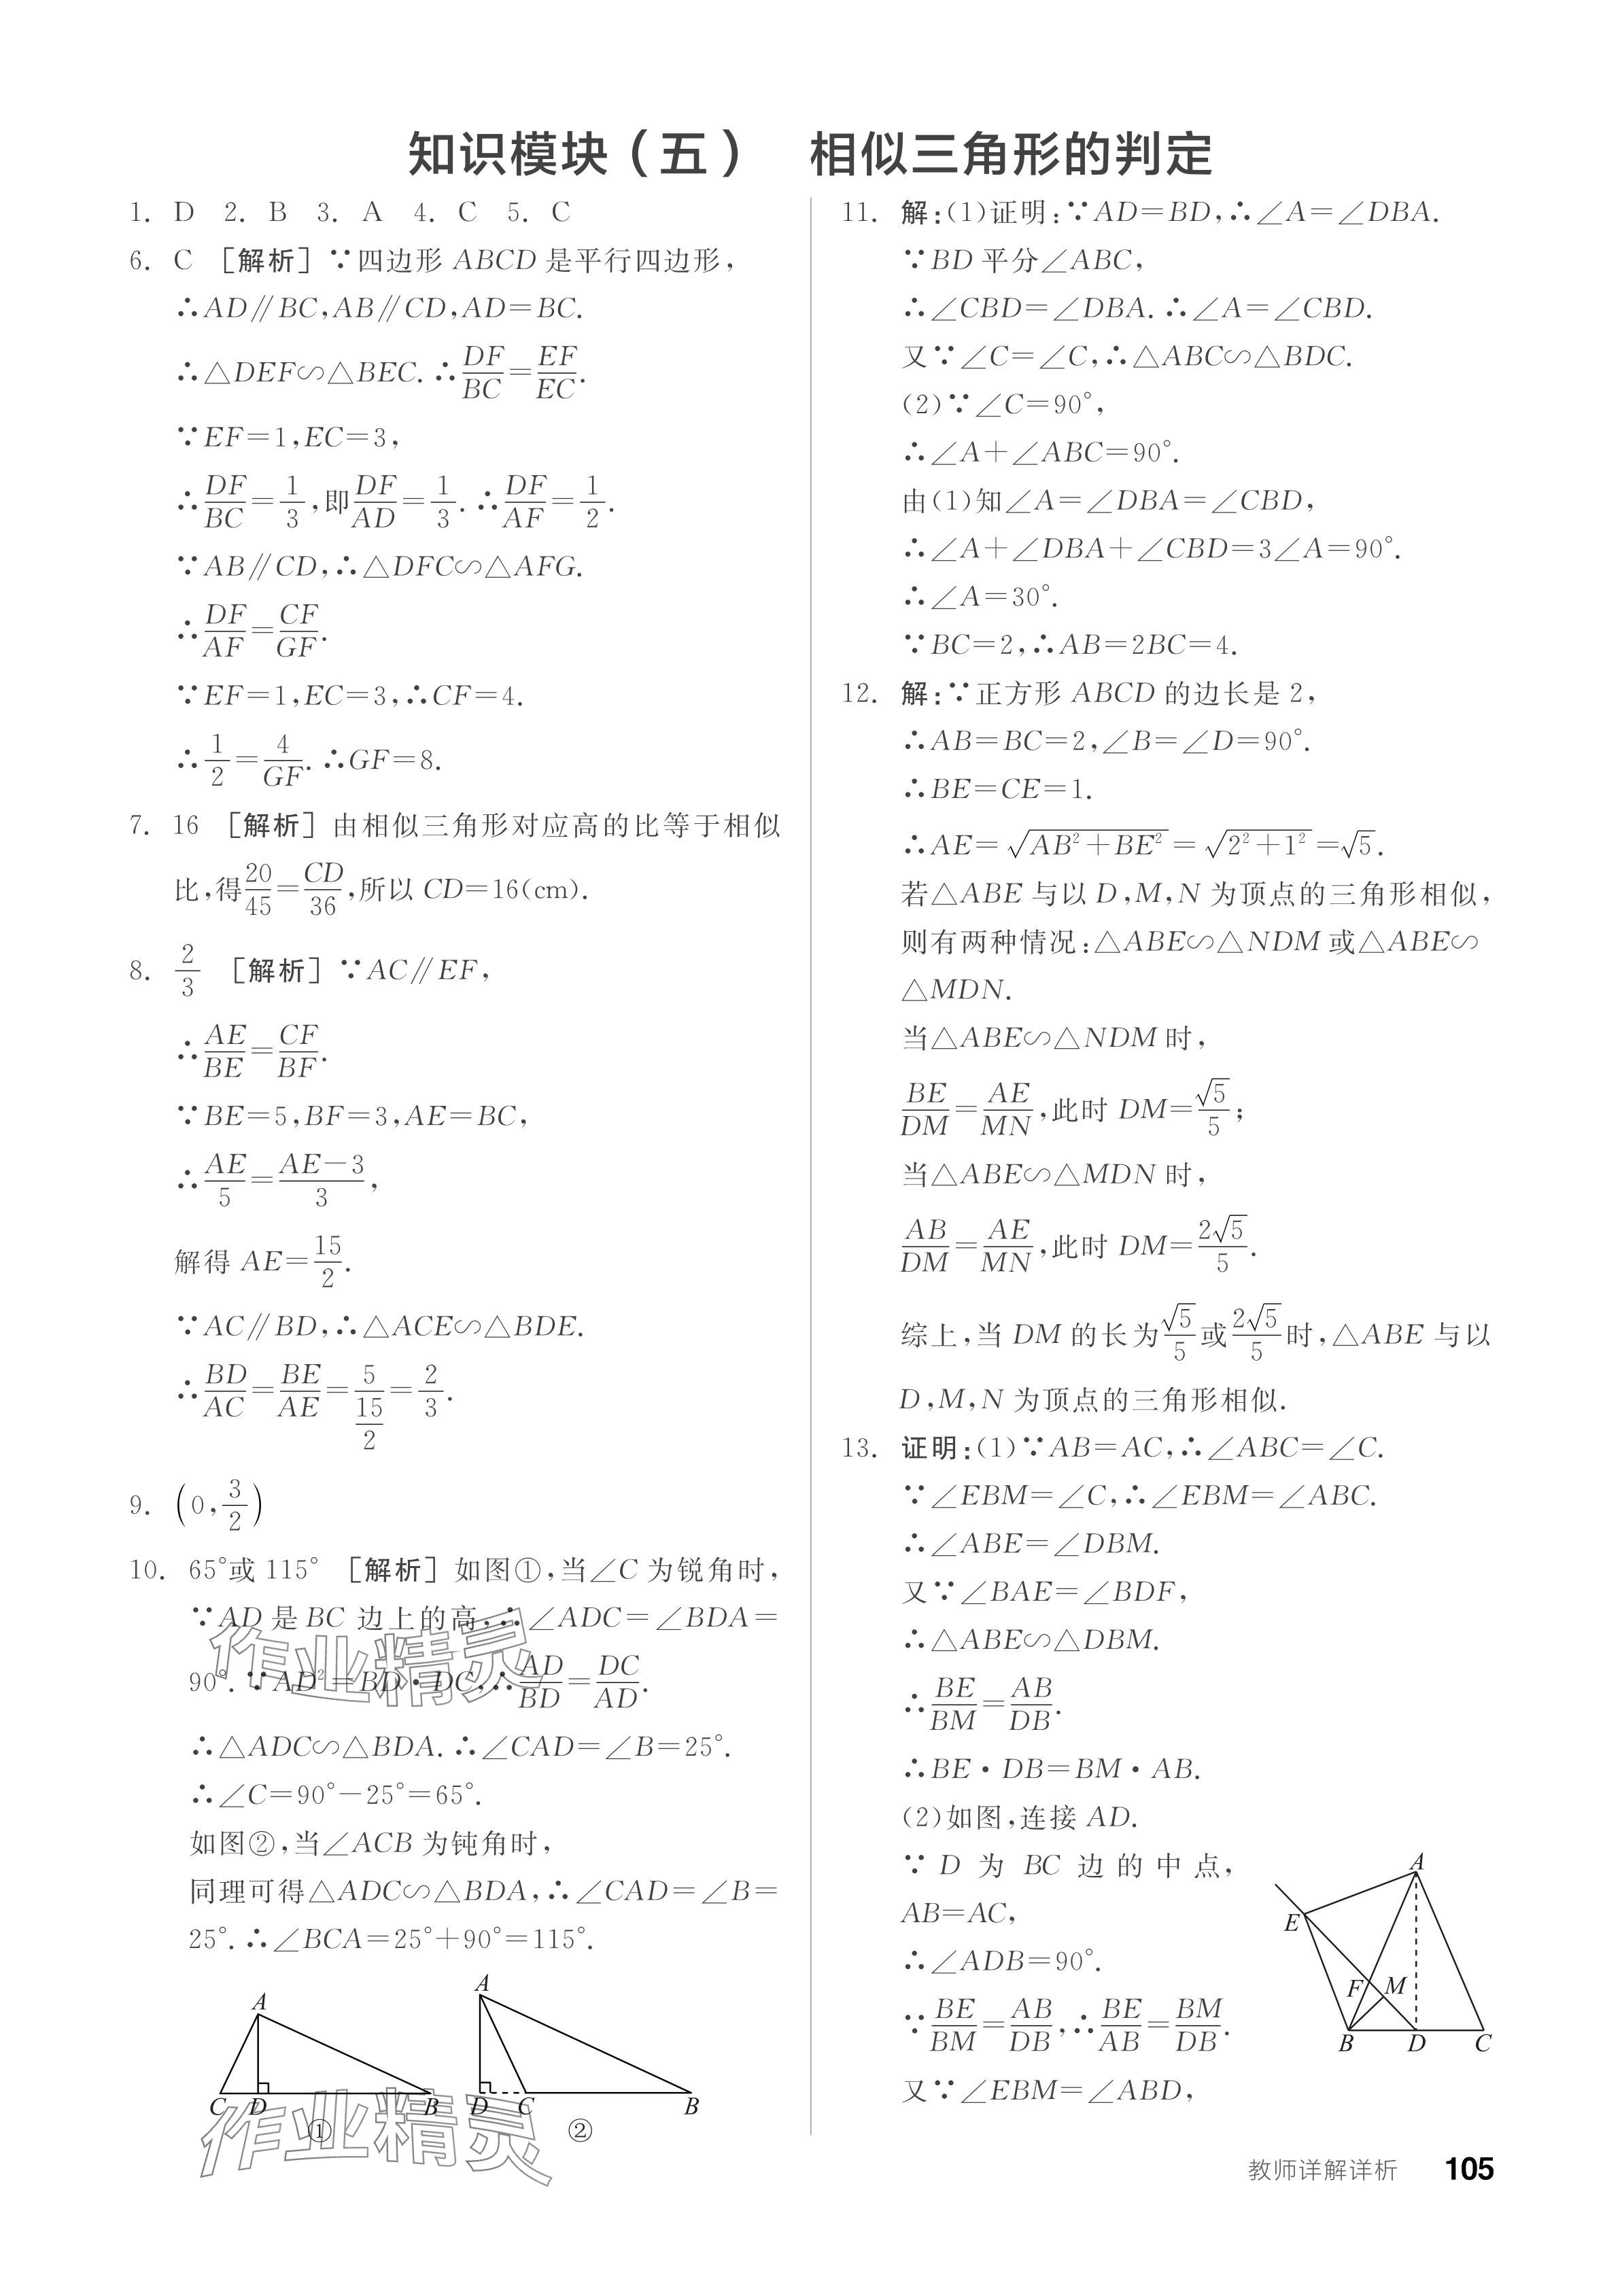 知识模块（五）　相似三角形的判定
1. D 2. B 3. A 4. C 5. C
6. C ［解析］∵四边形 ABCD 是平行四边形，
∴AD∥BC,AB∥CD,AD=BC.
∴△DEF∽△BEC. ∴DF/BC=EF/EC.
∵EF=1,EC=3,
∴DF/BC=1/3,即DF/AD=1/3. ∴DF/AF=1/2.
∵AB∥CD,∴△DFC∽△AFG.
∴DF/AF=CF/GF.
∵EF=1,EC=3,∴CF=4.
∴1/2=4/GF. ∴GF=8.
7. 16 ［解析］由相似三角形对应高的比等于相似
比,得20/45=CD/36,所以 CD=16(cm).
8. 2/3 ［解析］∵AC∥EF,
∴AE/BE=CF/BF.
∵BE=5,BF=3,AE=BC,
∴AE/5=(AE-3)/3,
解得 AE=15/2.
∵AC∥BD,∴△ACE∽△BDE.
∴BD/AC=BE/AE=5/(15/2)=2/3.
9. (0,3/2)
10. 65°或 115° ［解析］如图①,当∠C 为锐角时,
∵AD 是 BC 边上的高,∴∠ADC=∠BDA=
90°. ∵AD²=BD·DC,∴AD/BD=DC/AD.
∴△ADC∽△BDA. ∴∠CAD=∠B=25°.
∴∠C=90°-25°=65°.
如图②,当∠ACB 为钝角时,
同理可得△ADC∽△BDA,∴∠CAD=∠B=
25°. ∴∠BCA=25°+90°=115°.
A
C D B
①
A
D C B
②
11. 解:(1)证明:∵AD=BD,∴∠A=∠DBA.
∵BD 平分∠ABC,
∴∠CBD=∠DBA. ∴∠A=∠CBD.
又∵∠C=∠C,∴△ABC∽△BDC.
(2)∵∠C=90°,
∴∠A+∠ABC=90°.
由(1)知∠A=∠DBA=∠CBD,
∴∠A+∠DBA+∠CBD=3∠A=90°.
∴∠A=30°.
∵BC=2,∴AB=2BC=4.
12. 解:∵正方形 ABCD 的边长是 2,
∴AB=BC=2,∠B=∠D=90°.
∴BE=CE=1.
∴AE=√(AB²+BE²)=√(2²+1²)=√5.
若△ABE 与以 D,M,N 为顶点的三角形相似,
则有两种情况:△ABE∽△NDM 或△ABE∽
△MDN.
当△ABE∽△NDM 时,
BE/DM=AE/MN,此时 DM=√5/5;
当△ABE∽△MDN 时,
AB/DM=AE/MN,此时 DM=2√5/5.
综上,当 DM 的长为√5/5或2√5/5时,△ABE 与以
D,M,N 为顶点的三角形相似.
13. 证明:(1)∵AB=AC,∴∠ABC=∠C.
∵∠EBM=∠C,∴∠EBM=∠ABC.
∴∠ABE=∠DBM.
又∵∠BAE=∠BDF,
∴△ABE∽△DBM.
∴BE/BM=AB/DB.
∴BE·DB=BM·AB.
(2)如图,连接 AD.
∵D 为 BC 边的中点,
AB=AC,
∴∠ADB=90°.
∵BE/BM=AB/DB,∴BE/AB=BM/DB.
又∵∠EBM=∠ABD,
A
E
F M
B D C
作业精灵
作业精灵
教师详解详析 105